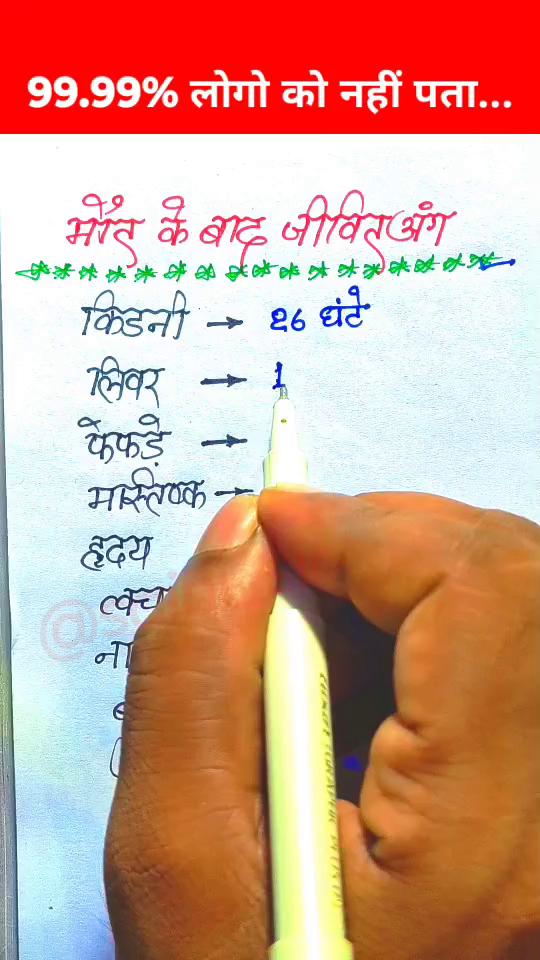 99.99% लोगो को नहीं पता...
मौत के बाद जीवित अंग
किडनी → 26 घंटे
लिवर → 1
फेफड़े →
मस्तिष्क →
हृदय
त्वच
ना